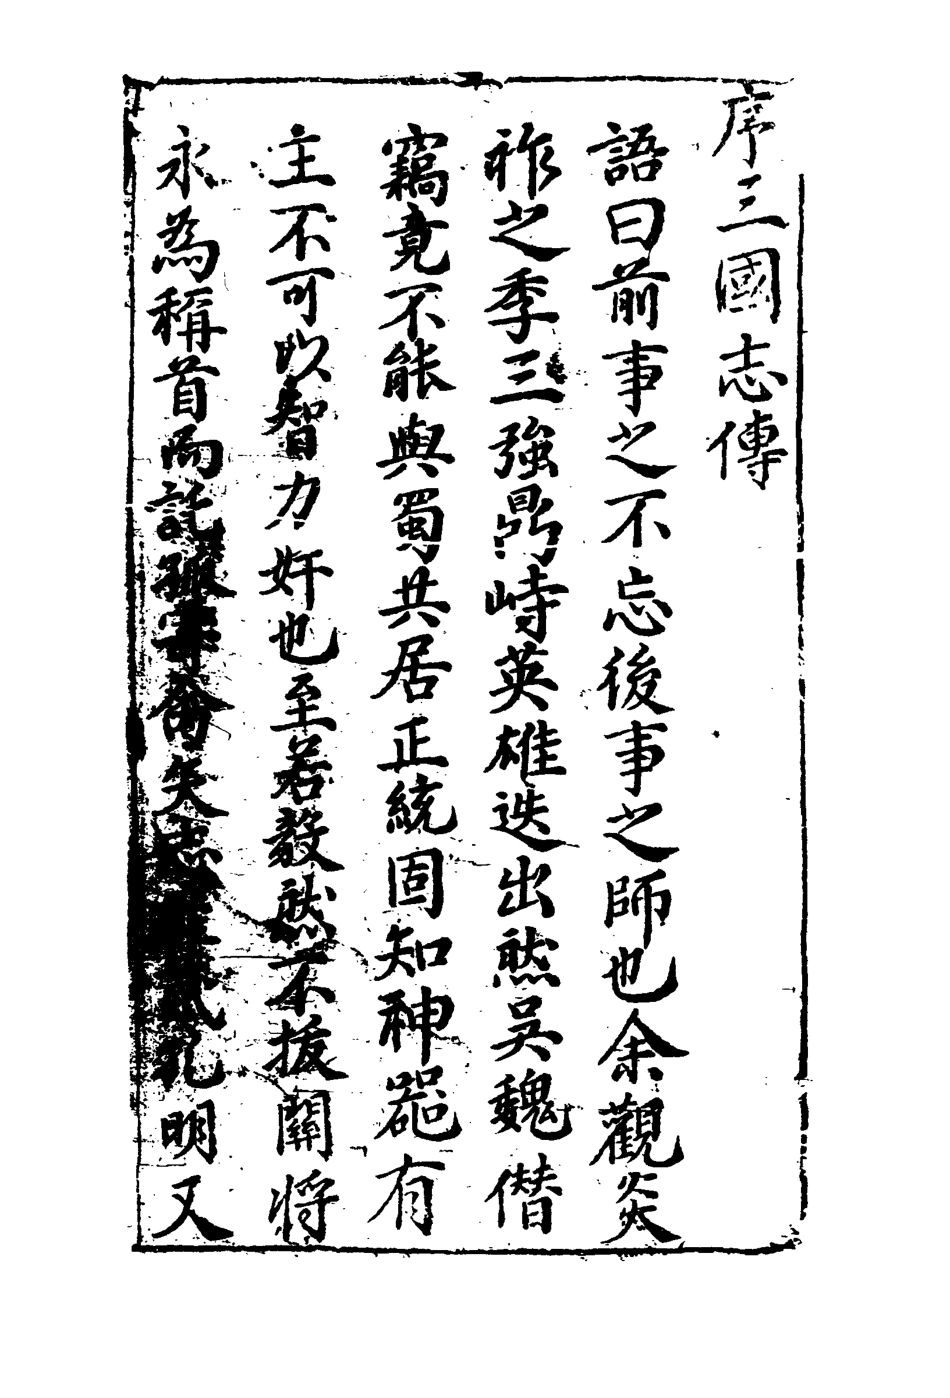 序三國志傳
語曰前事之不忘後事之師也余觀炎
祚之季三強鼎峙英雄迭出然吳魏僣
竊竟不能與蜀共居正統固知神噐有
主不可以智力奸也至若毅然不拔關將
永為稱首而託孤寄命矢志孔明又